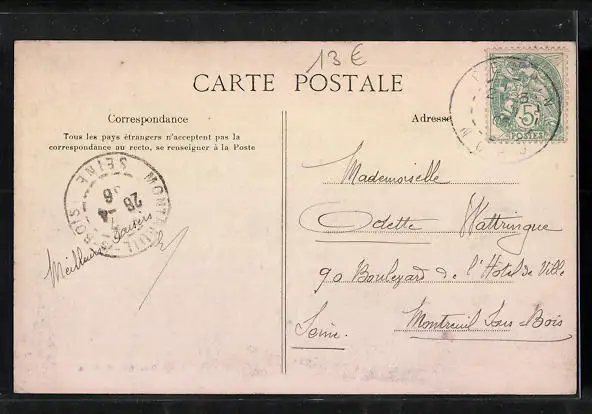 13 E
CARTE POSTALE
Correspondance
Tous les pays étrangers n'acceptent pas la
correspondance au recto, se renseigner à la Poste
MONTREUIL-S-BOIS SEINE
28 -4
06
Meilleurs Baisers
Adresse
5c
POSTES
Mademoiselle
Odette Wattringue
90 Boulevard de l'Hotel de Ville
Montreuil Sous-Bois
Seine.